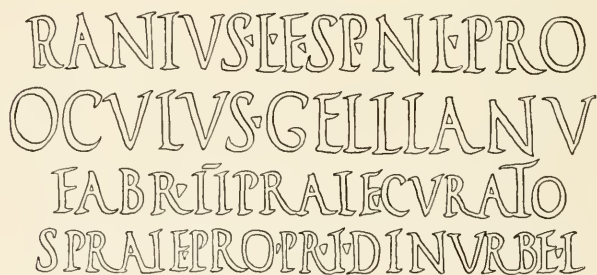 RANIVS·L·F·SP·N·L·PRO
OCVLVS·GELLIANV
FABR·ĪĪ PRAIF·CVRATO
S PRAIF·PRO·PR·I·D IN VRBE·L